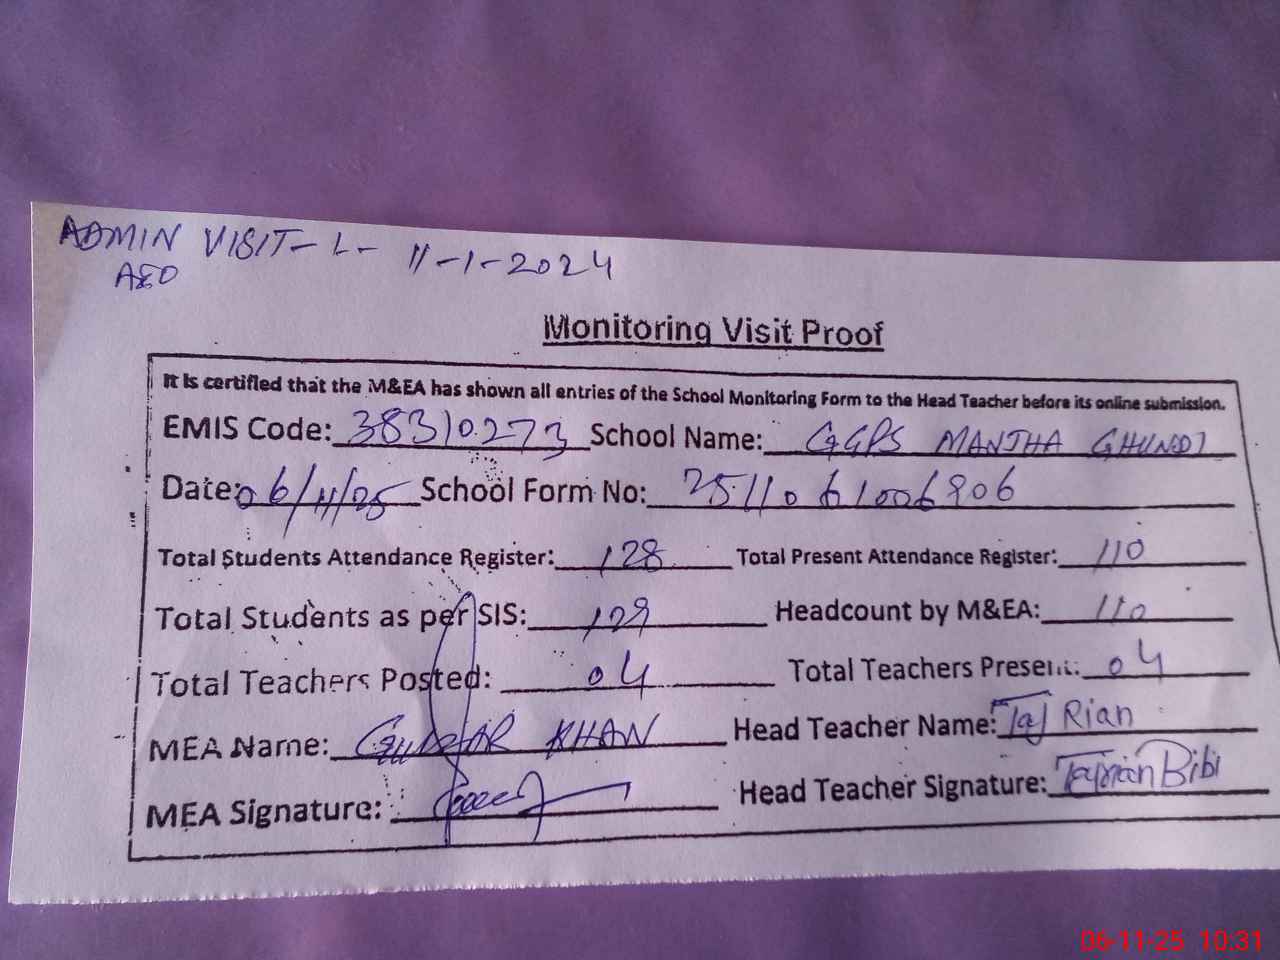 ADMIN VISIT-1- 11-1-2024
AEO
Monitoring Visit Proof
It is certified that the M&EA has shown all entries of the School Monitoring Form to the Head Teacher before its online submission.
EMIS Code: 38310273 School Name: GGPS MANJHA GHUNDI
Date: 06/11/25 School Form No: 2511061006906
Total Students Attendance Register: 128 Total Present Attendance Register: 110
Total Students as per SIS: 129 Headcount by M&EA: 110
Total Teachers Posted: 04 Total Teachers Present: 04
MEA Name: KHAN Head Teacher Name: Taj Rian
MEA Signature: Head Teacher Signature: Tajrian Bibi
06-11-25 10:31